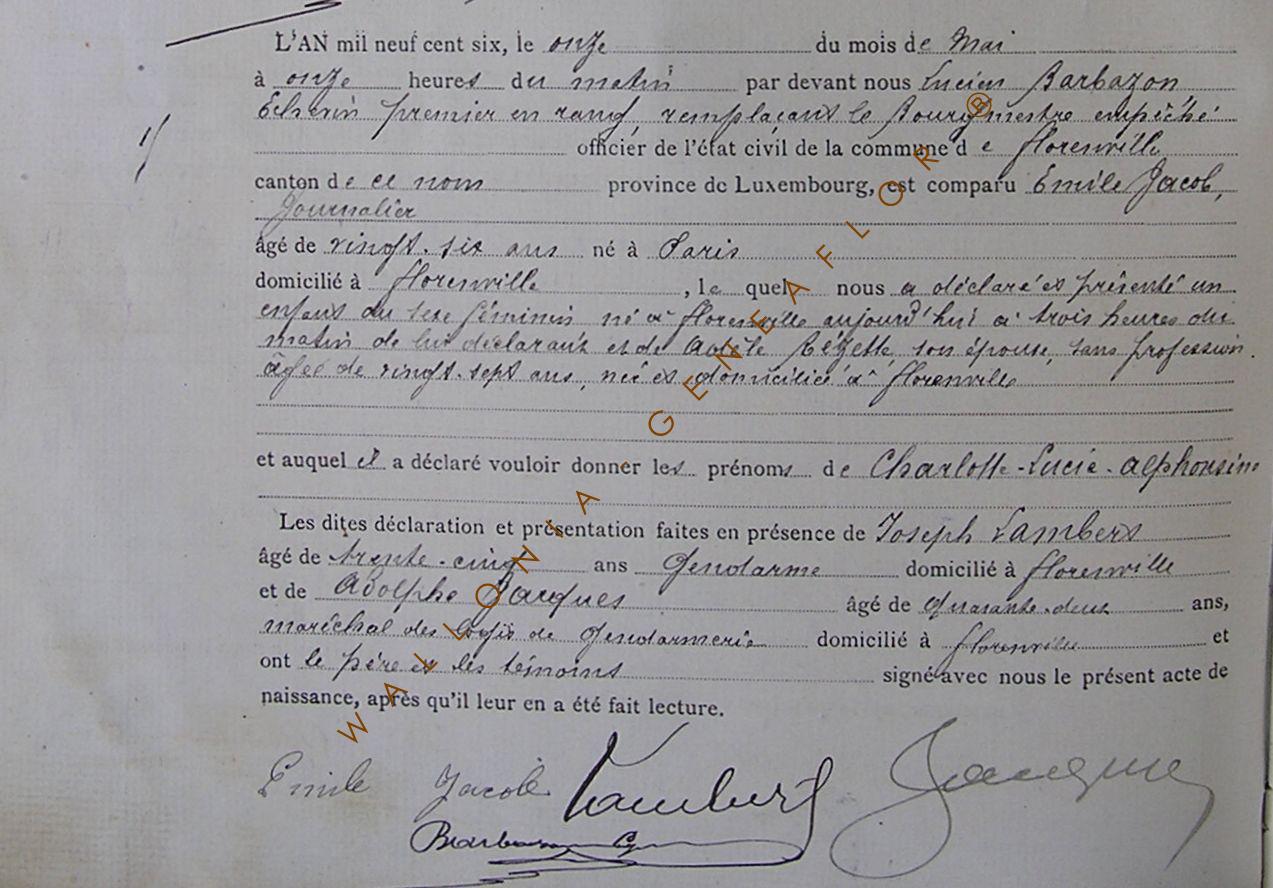 L'AN mil neuf cent six, le onze du mois de Mai
à onze heures du matin par devant nous Lucien Barbazon,
Echevin premier en rang, remplaçant le Bourgmestre empêché
officier de l'état civil de la commune de Florenville
canton de ce nom province de Luxembourg, est comparu Emile Jacob,
Journalier
âgé de vingt-six ans né à Paris
domicilié à Florenville, le quel nous a déclaré et présenté un
enfant du sexe féminin né à Florenville aujourd'hui à trois heures du
matin de lui déclarant et de Adèle son épouse, sans profession
âgée de vingt-sept ans, née et domiciliée à Florenville
et auquel il a déclaré vouloir donner les prénoms de Charlotte-Lucie-Alphonsine
Les dites déclaration et présentation faites en présence de Joseph Lambert
âgé de trente-cinq ans Gendarme domicilié à Florenville
et de Adolphe Jacques âgé de quarante-deux ans,
maréchal des logis de Gendarmerie domicilié à Florenville et
ont le père et les témoins signé avec nous le présent acte de
naissance, après qu'il leur en a été fait lecture.
Emile Jacob Lambert Jacques
Barbazon
WALLONIA GENEAFLOR ®